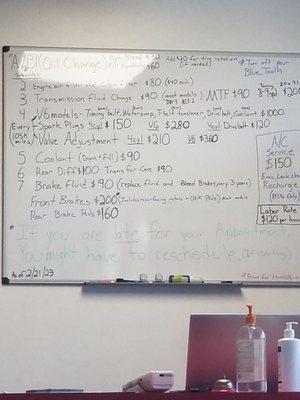 "A/B1 (Oil Change)
Add $20 for tire rotation
(if needed)
* Turn off your
Blue Tooth
2 Engine air filter and Cabin filter $80 ($40 each)
3 Transmission Fluid Change $90 (most models) MTF $90
4 V6 models - Timing belt, Water pump, T-belt tensioner, Drive belt, Coolant $1000
Every 105K miles
Spark Plugs 4cyl $150 V6 $280 4cyl Drivebelt $120
Valve Adjustment 4cyl $210 V6 $380
5 Coolant (Drain + Fill) $90
6 Rear Diff $100 Transfer Case $90
7 Brake Fluid $90 (replace fluid and Bleed Brakes, every 3 years)
Front Brakes $200 (Includes resurfacing rotors + OEM Pads) most models
Rear Brake Pads $160
A/C
Service
$150
Recharge
Labor Rate
$120 per hour
*If you are late for your Appointment,
You might have to reschedule,
As of 2/21/23